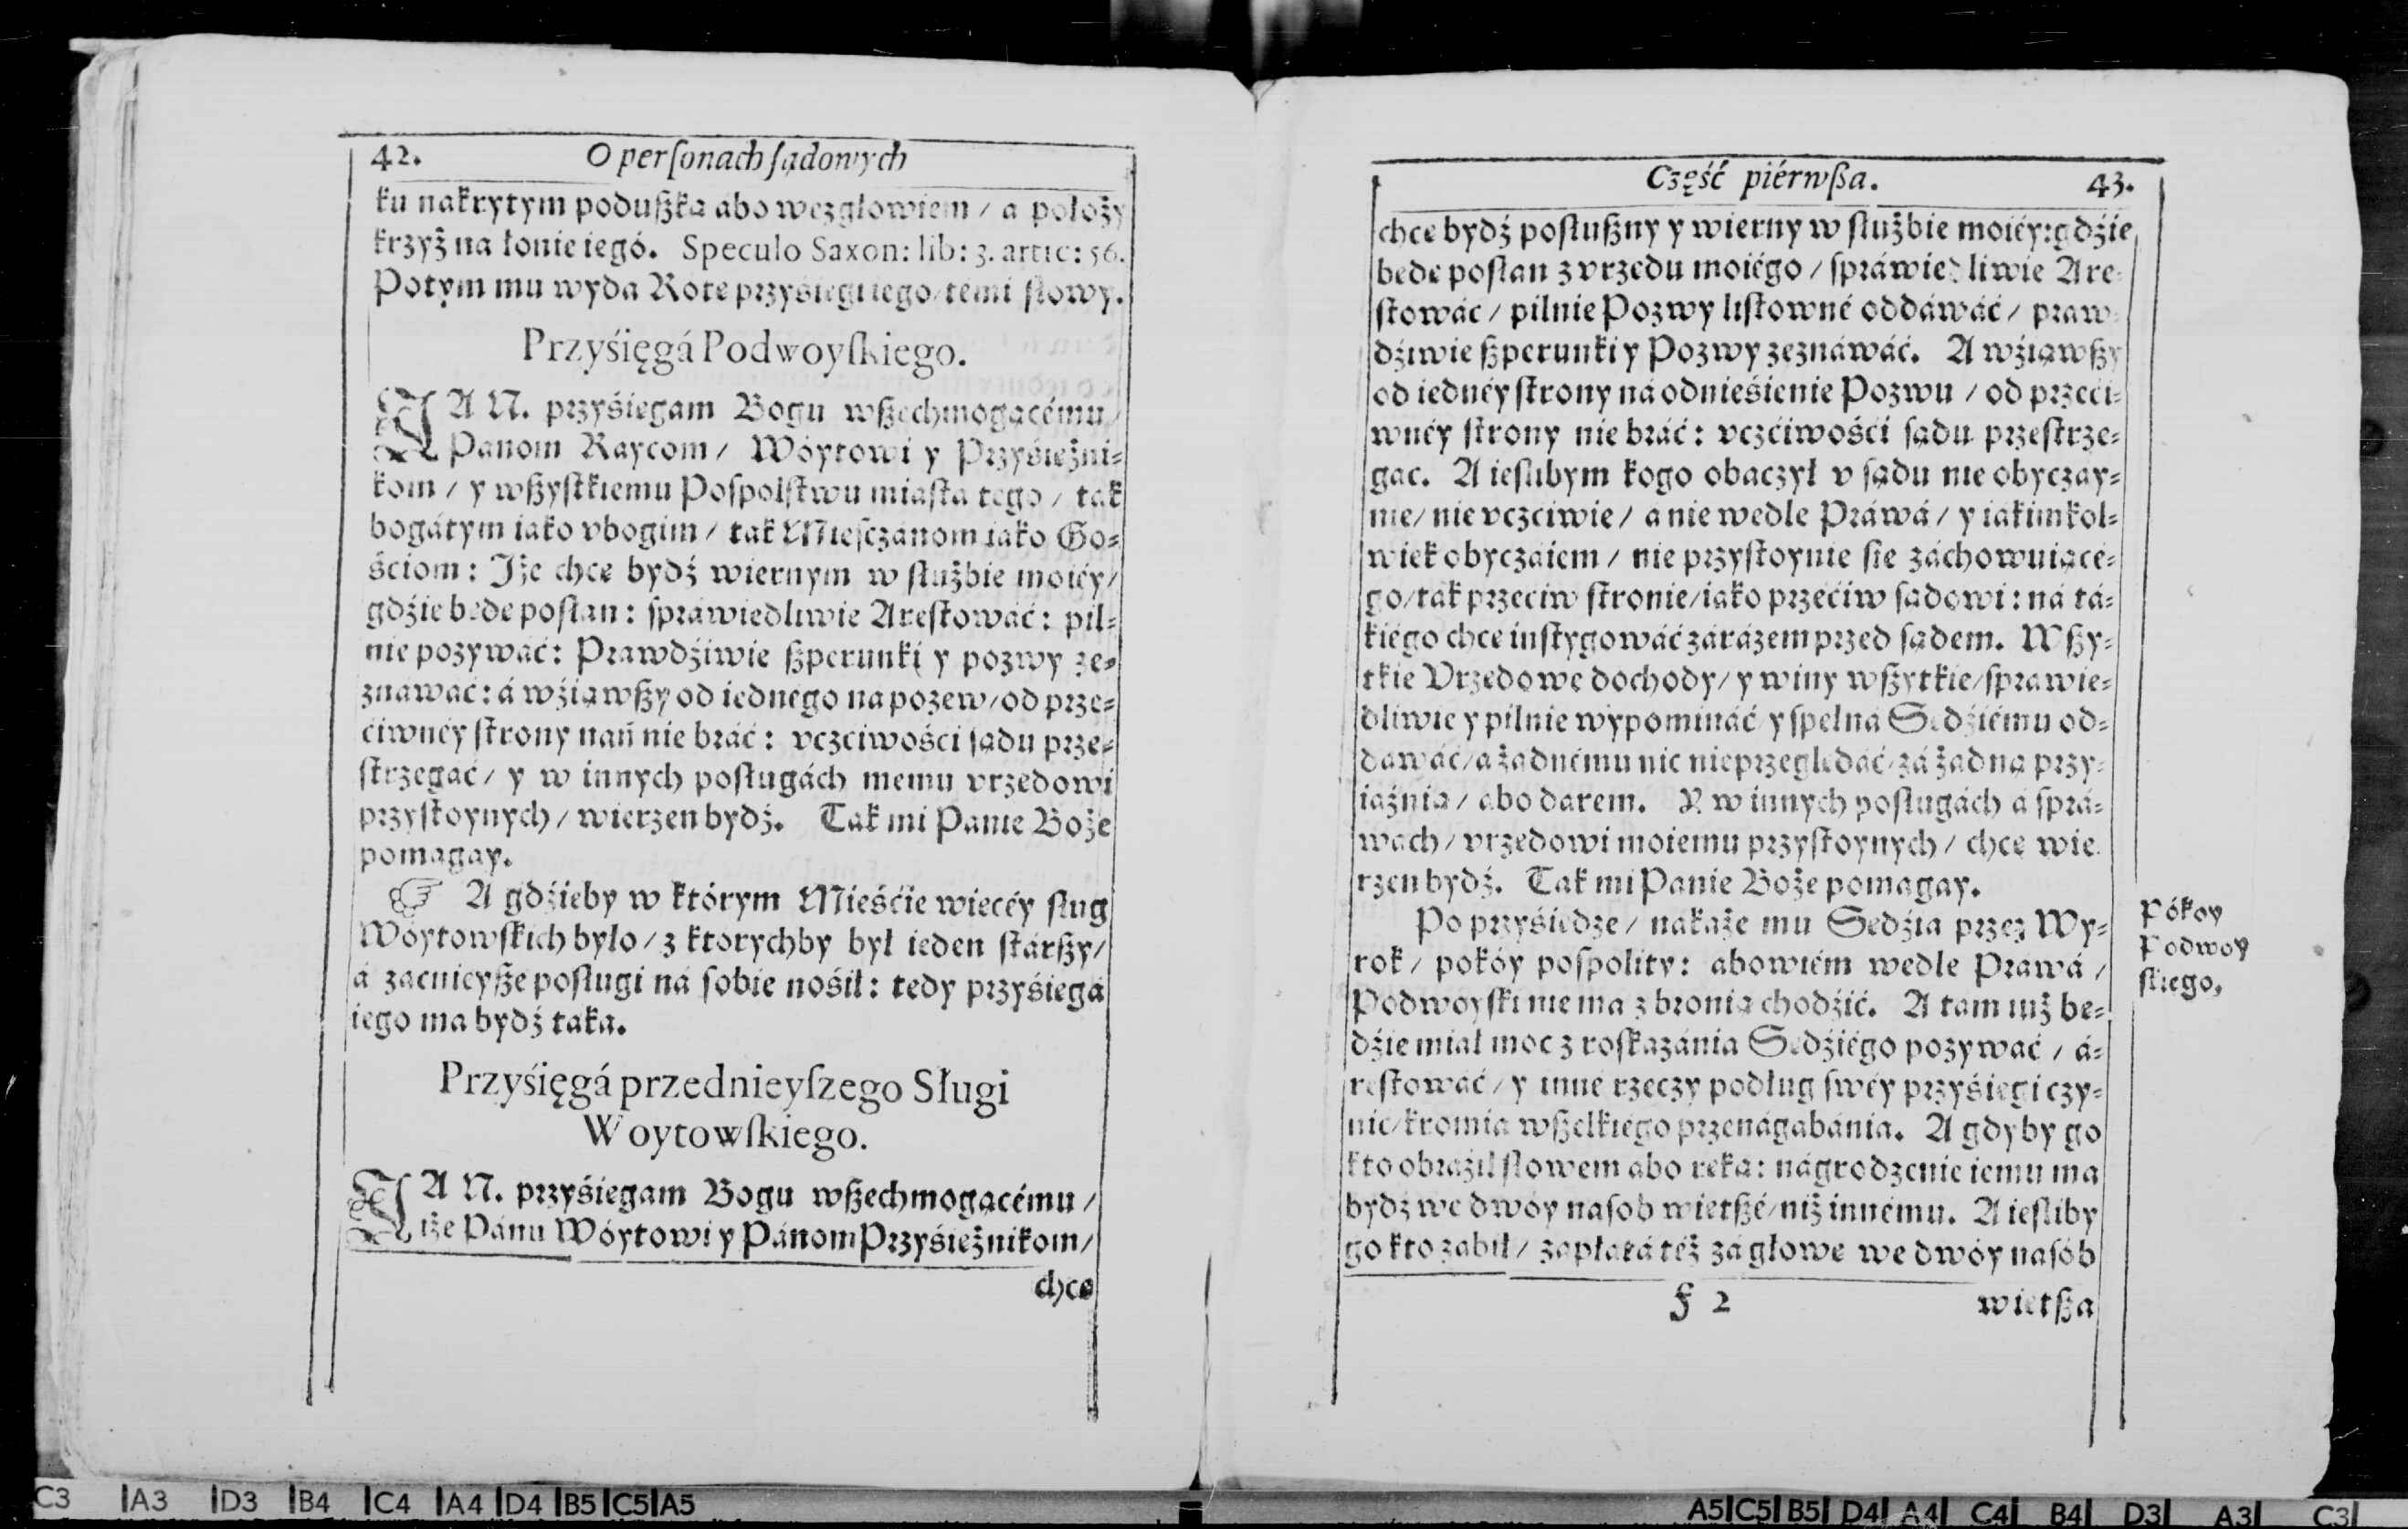 42. O perſonach ſądowych
ku nakrytym poduſzką abo wezgłowiem / a położy
krzyż na łonie iegó. Speculo Saxon: lib: 3. artic: 56.
Potym mu wyda Rotę przyśięgi iego / témi słowy.
Przyśięgá Podwoyſkiego.
JA N. przyśięgam Bogu wſzechmogącému /
Panom Raycom / Wóytowi y Przyśiężni-
kom / y wſzyſtkiemu Poſpolſtwu miaſta tego / tak
bogátym iako vbogim / tak Mieſczanom iako Go-
ściom: Iże chcę bydź wiernym w służbie moiéy /
gdźie będę posłan: ſprawiedliwie Areſtowáć: pil-
nie pozywáć: Prawdźiwie ſzperunki y pozwy ze-
znawáć: á wźiąwſzy od iednégo na pozew / od prze-
ćiwnéy ſtrony nań nie bráć: vczciwośći ſądu prze-
ſtrzegáć / y w innych posługách memu vrzędowi
przyſtoynych / wierzen bydź. Tak mi Panie Boże
pomagay.
☞ A gdźieby w którym Mieśćie więcéy sług
Wóytowſkich było / z ktorychby był ieden ſtárſzy /
á zacnieyſze posługi ná ſobie nośił: tedy przyśięgá
iego ma bydź taka.
Przyśięgá przednieyſzego Sługi
Woytowſkiego.
JA N. przyśięgam Bogu wſzechmogącému /
iże Pánu Wóytowi y Pánom Przyśiężnikom /
chcę
Część piérwſza. 43.
chcę bydź posłuſzny y wierny w służbie moiéy: gdźie
będę posłan z vrzędu moiégo / ſpráwiedliwie Are-
ſtowáć / pilnie Pozwy liſtowné oddáwáć / praw-
dźiwie ſzperunki y Pozwy zeznáwáć. A wźiąwſzy
od iednéy ſtrony ná odnieśienie Pozwu / od przeći-
wnéy ſtrony nie bráć: vczćiwośći ſądu przeſtrze-
gac. A ieslibym kogo obaczył v ſądu nie obyczay-
nie / nie vczciwie / a nie wedle Práwá / y iakimkol-
wiek obyczaiem / nie przyſtoynie ſię záchowuiącé-
go / tak przeciw ſtronie / iáko przećiw ſądowi: ná tá-
kiégo chcę inſtygowáć zárázem przed ſądem. Wſzy-
tkie Vrzędowe dochody / y winy wſzytkie / ſprawie-
dliwie y pilnie wypomináć y ſpełná Sędźiému od-
dawáć / a żadnému nic nieprzeględáć / zá żadną przy-
iaźnią / abo darem. Y w innych posługách á ſprá-
wach / vrzędowi moiemu przyſtoynych / chcę wie-
rzen bydź. Tak mi Panie Boże pomagay.
Po przyśiędze / nakaże mu Sędźia przez Wy-
rok / pokóy poſpolity: abowiém wedle Prawá /
Podwoyſki nie ma z bronią chodźić. A tam iuż bę-
dźie miał moc z roſkazánia Sędźiégo pozywáć / á-
reſtowáć / y inné rzeczy podług ſwéy przyśięgi czy-
nić / kromiá wſzelkiégo przenágabánia. A gdyby go
kto obraźił słowem abo ręką: nágrodzenie iemu ma
bydź we dwóy nasób więtſzé / niż innému. A iesliby
go kto zabił / zapłatá téż zá głowę we dwóy nasób
F 2 więtſza
Pókoy
Podwoy
ſkiego,
C3 A3 D3 B4 C4 A4 D4 B5 C5 A5
A5 C5 B5 D4 A4 C4 B4 D3 A3 C3